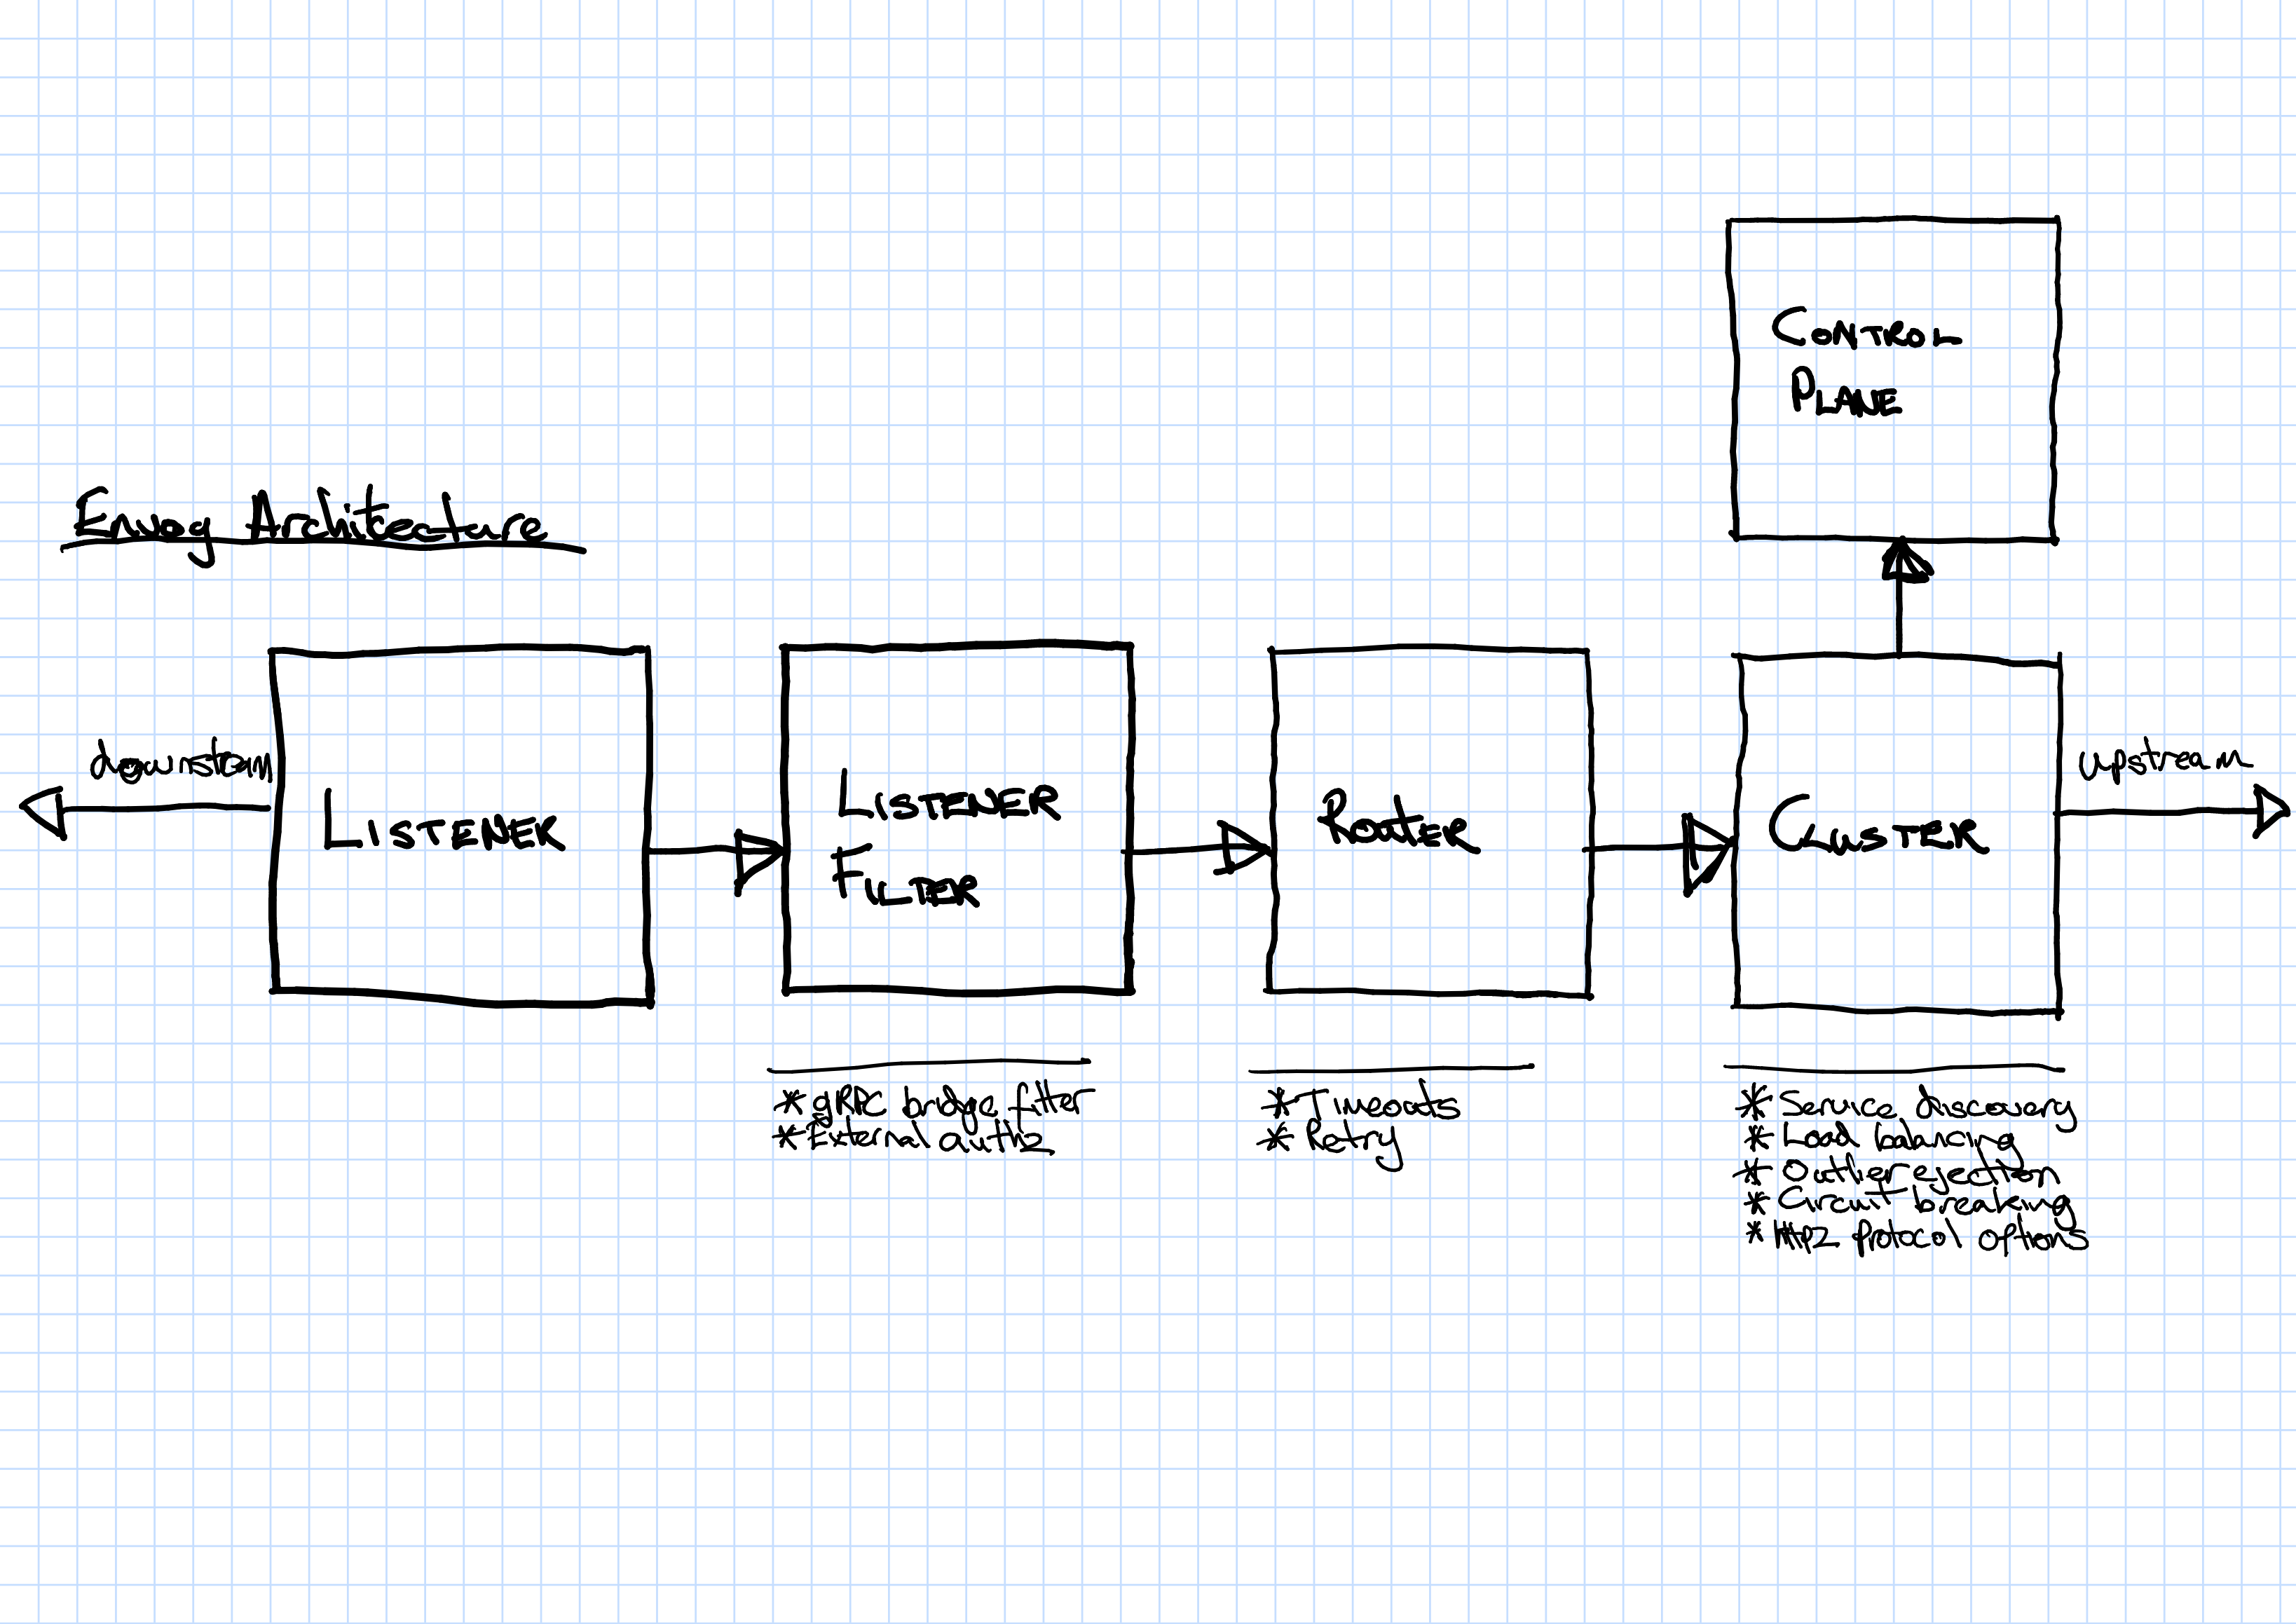 Envoy Architecture
CONTROL
PLANE
downstream
LISTENER
LISTENER
FILTER
ROUTER
CLUSTER
upstream
* gRPC bridge filter
* External authz
* Timeouts
* Retry
* Service discovery
* Load balancing
* Outlier ejection
* Circuit breaking
* http2 protocol options